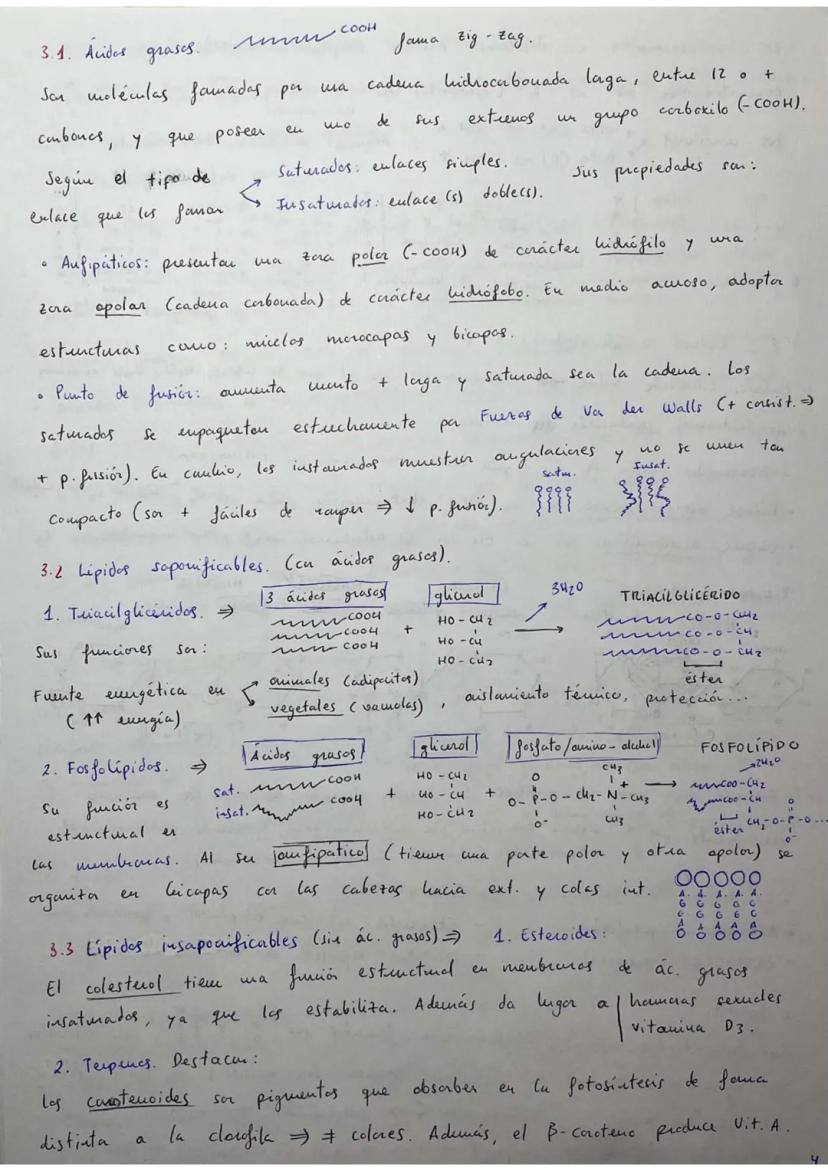 3.1. Ácidos grasos. COOH forma zig-zag.
Son moléculas formadas por una cadena hidrocarbonada larga, entre 12 o +
carbonos, y que poseen en uno de sus extremos un grupo carboxilo (-COOH).
Según el tipo de enlace que los forman
Saturados: enlaces simples.
Insaturados: enlace(s) doble(s).
Sus propiedades son:
• Anfipáticos: presentan una zona polar (-COOH) de carácter hidrófilo y una
zona apolar (cadena carbonada) de carácter hidrófobo. En medio acuoso, adoptan
estructuras como: micelas monocapas y bicapas.
• Punto de fusión: aumenta cuanto + larga y saturada sea la cadena. Los
saturados se empaquetan estrechamente por Fuerzas de Van der Walls (+ consist. ⇒
+ p. fusión). En cambio, los instaurados muestran angulaciones y no se unen tan
compacto (son + fáciles de romper ⇒ ↓ p. fusión).
Satu. Insat.
3.2 Lípidos saponificables. (con ácidos grasos).
1. Triacilglicéridos. ⇒ 3 ácidos grasos glicerol 3H2O TRIACILGLICÉRIDO
COOH HO-CH2 CO-O-CH2
COOH + HO-CH → CO-O-CH
COOH HO-CH2 CO-O-CH2
éster
Sus funciones son:
Fuente energética en
(↑↑ energía)
animales (adipocitos)
vegetales (vacuolas), aislamiento térmico, protección...
2. Fosfolípidos. ⇒ Ácidos grasos glicerol fosfato/amino-alcohol FOSFOLÍPIDO
sat. COOH HO-CH2 O CH3 2H2O
insat. COOH + HO-CH + O-P-O-CH2-N-CH3 + → COO-CH2
HO-CH2 O- CH3 COO-CH O
éster CH2-O-P-O...
O-
Su función es
estructural en
las membranas. Al ser anfipático (tienen una parte polar y otra apolar) se
organizan en bicapas con las cabezas hacia ext. y colas int.
3.3 Lípidos insaponificables (sin ác. grasos) ⇒ 1. Esteroides:
El colesterol tiene una función estructural en membranas de ác. grasos
insaturados, ya que los estabiliza. Además da lugar a
hormonas sexuales
vitamina D3.
2. Terpenos. Destacan:
Los carotenoides son pigmentos que absorben en la fotosíntesis de forma
distinta a la clorofila ⇒ ≠ colores. Además, el β-caroteno produce Vit. A.
4